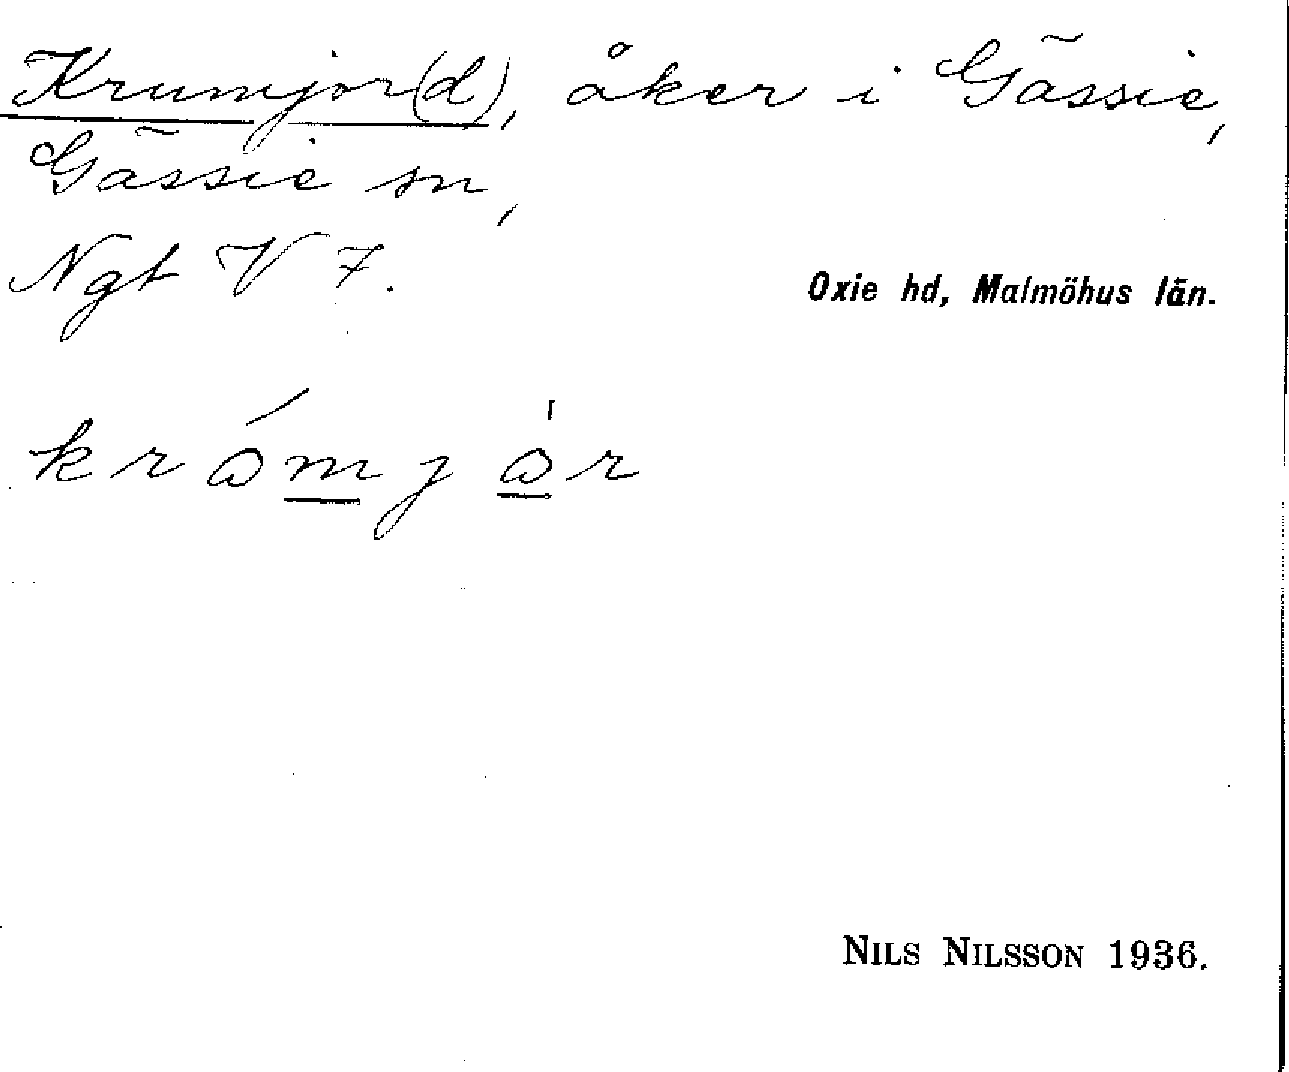 Krumjor(d), åker i Gässie,
Gässie sn,
Ngt V 7.
Oxie hd, Malmöhus län.
krómjòr
NILS NILSSON 1936.